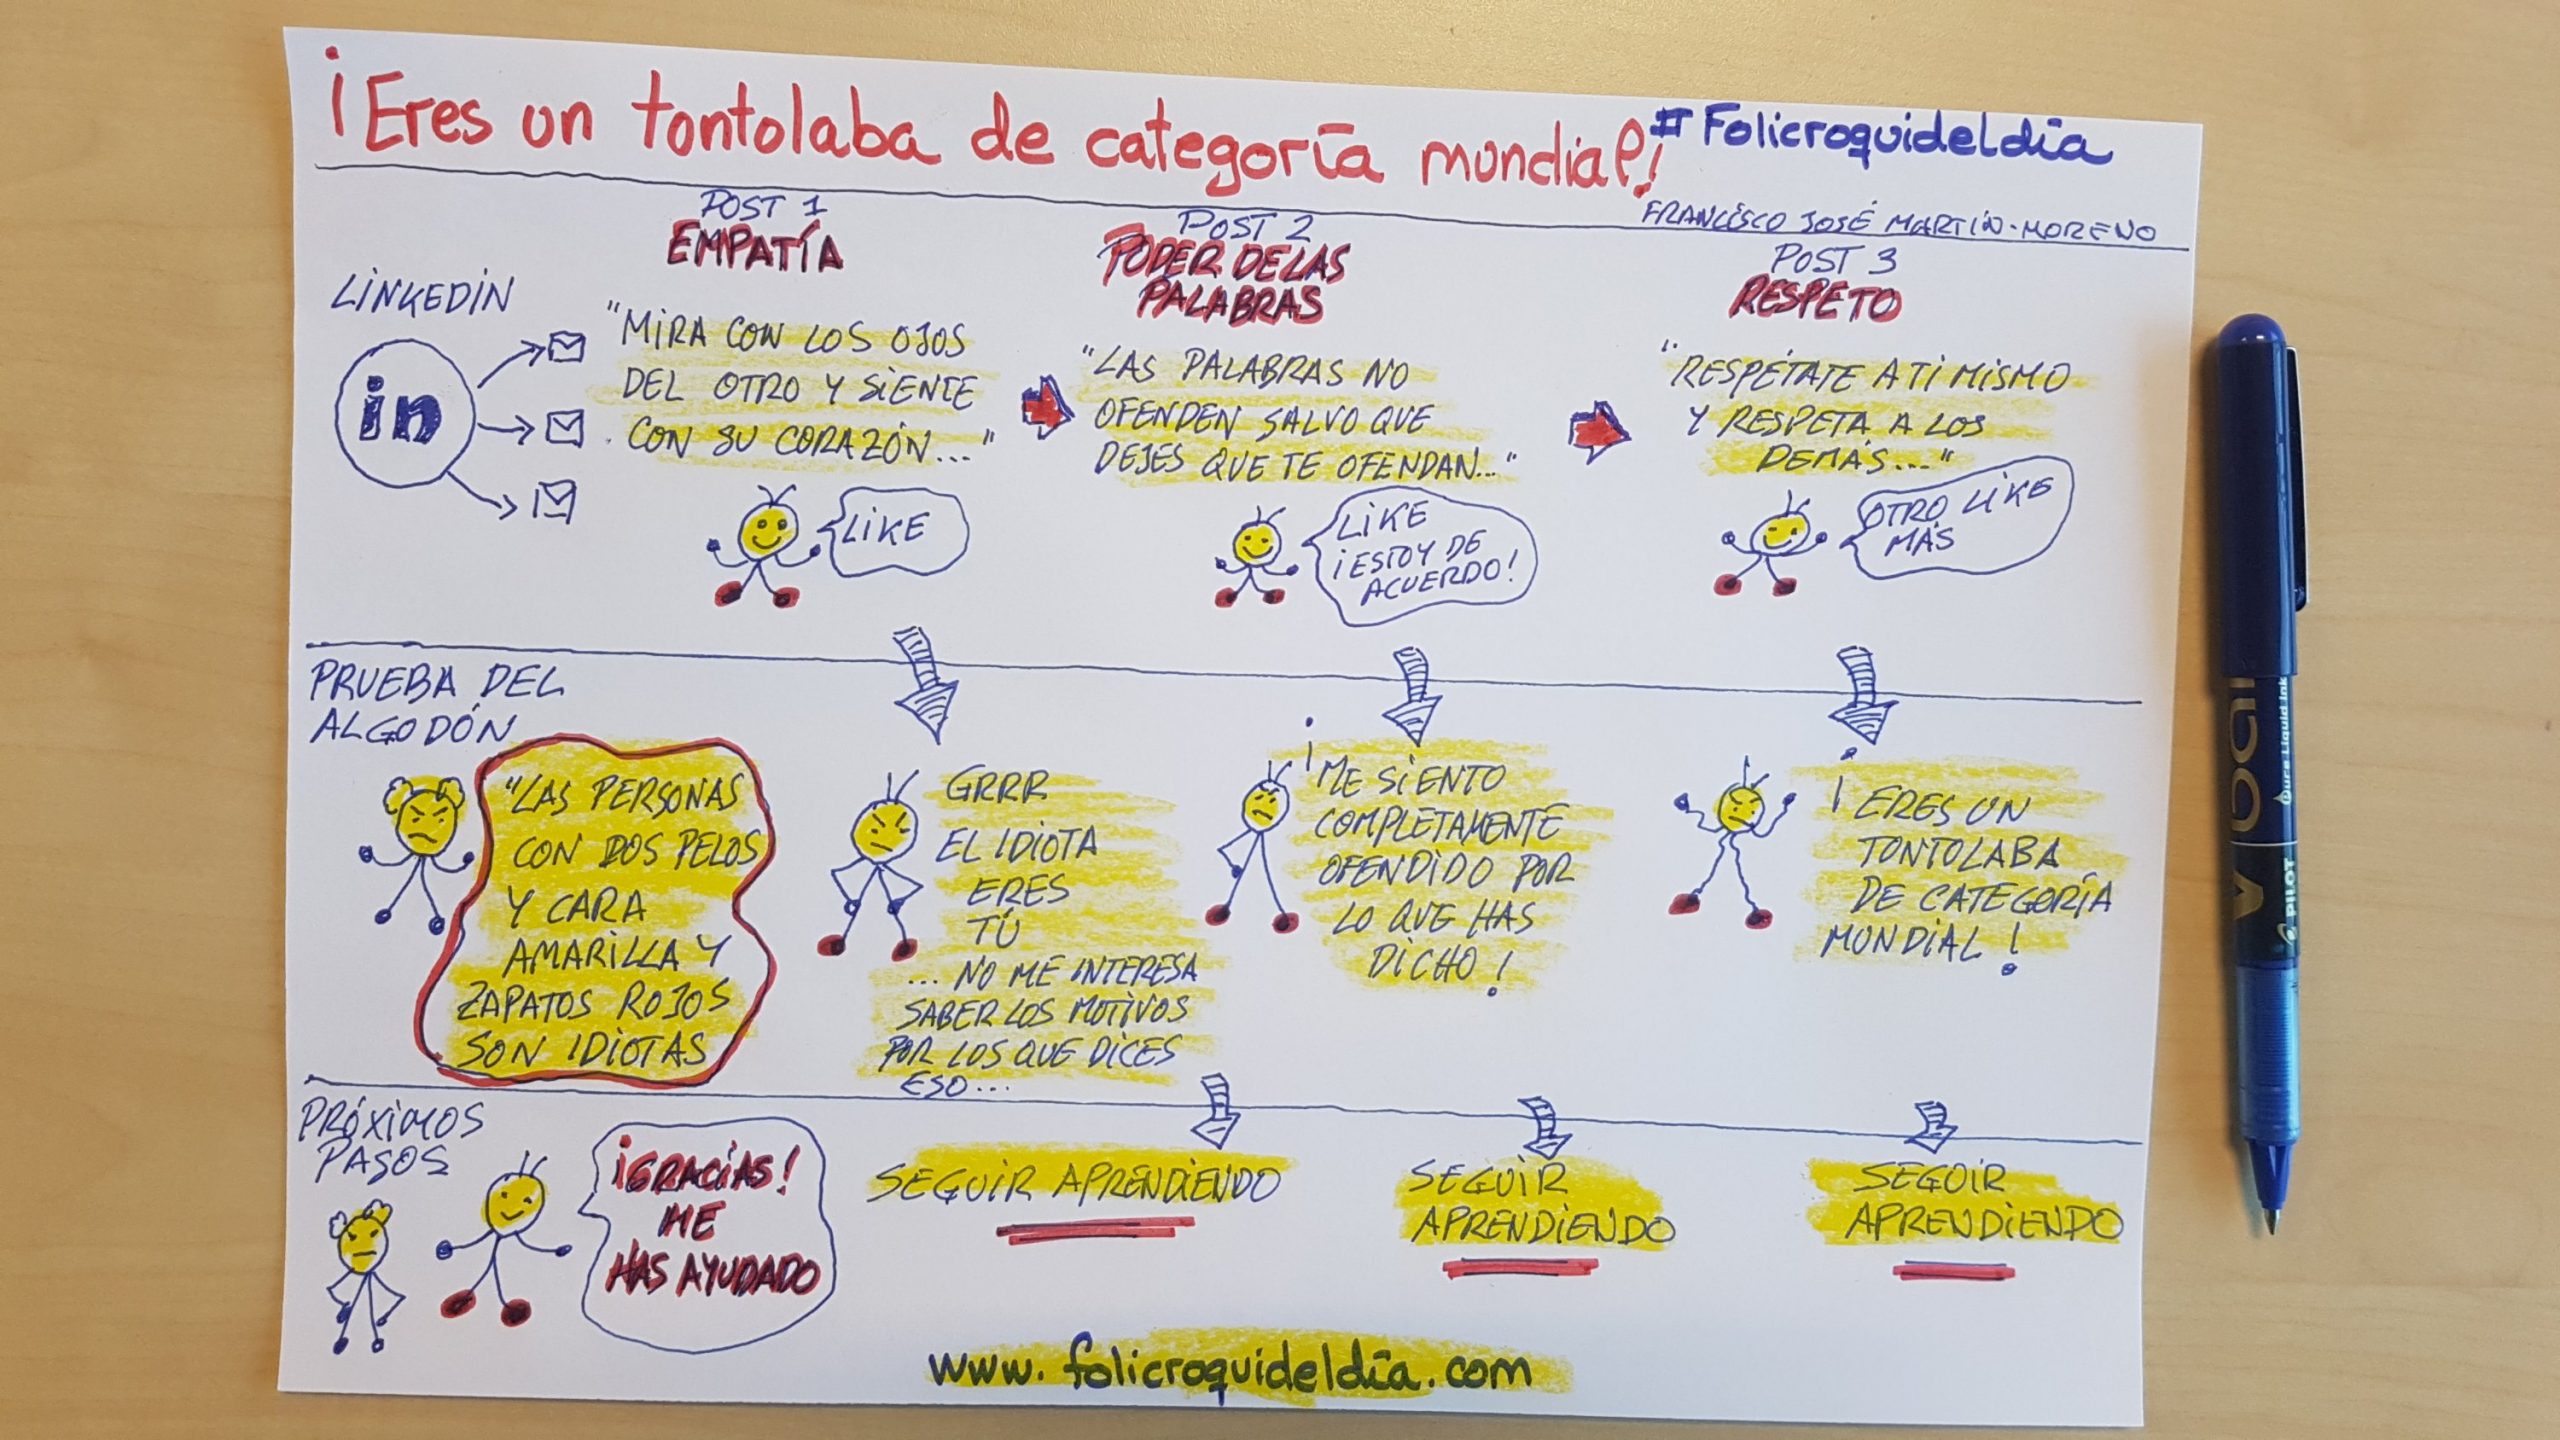 ¡Eres un tontolaba de categoría mundial!
#Folicroquideldía
FRANCISCO JOSÉ MARTÍN-MORENO
LINKEDIN
in
POST 1
EMPATÍA
"MIRA CON LOS OJOS
DEL OTRO Y SIENTE
CON SU CORAZÓN..."
LIKE
POST 2
PODER DE LAS
PALABRAS
"LAS PALABRAS NO
OFENDEN SALVO QUE
DEJES QUE TE OFENDAN..."
LIKE
¡ESTOY DE
ACUERDO!
POST 3
RESPETO
"RESPÉTATE A TI MISMO
Y RESPETA A LOS
DEMÁS..."
OTRO LIKE
MÁS
PRUEBA DEL
ALGODÓN
"LAS PERSONAS
CON DOS PELOS
Y CARA
AMARILLA Y
ZAPATOS ROJOS
SON IDIOTAS
GRRR
EL IDIOTA
ERES
TÚ
... NO ME INTERESA
SABER LOS MOTIVOS
POR LOS QUE DICES
ESO...
¡ME SIENTO
COMPLETAMENTE
OFENDIDO POR
LO QUE HAS
DICHO!
¡ERES UN
TONTOLABA
DE CATEGORÍA
MUNDIAL!
PRÓXIMOS
PASOS
¡GRACIAS!
ME
HAS AYUDADO
SEGUIR APRENDIENDO
SEGUIR
APRENDIENDO
SEGUIR
APRENDIENDO
www.folicroquideldía.com
PILOT
Pure Liquid Ink